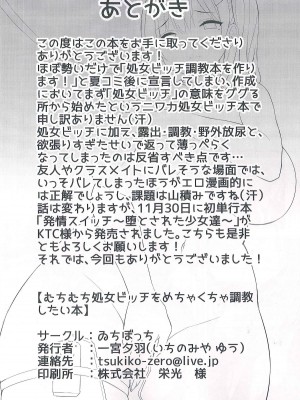 あとがき
この度はこの本をお手に取ってくださり
ありがとうございます！
ほぼ勢いだけで「処女ビッチ調教本を作り
ます！」と夏コミ後に宣言してしまい、作成
においてまず「処女ビッチ」の意味をググる
所から始めたというニワカ処女ビッチ本で
申し訳ありません(汗)
処女ビッチに加え、露出・調教・野外放尿と、
欲張りすぎたせいで返って薄っぺらく
なってしまったのは反省すべき点です…
友人やクラスメイトにバレそうな場面では、
いっそバレてしまったほうがエロ漫画的に
は正解でしょうし、課題は山積みですね(汗)
話は変わりますが、11月30日に初単行本
「発情スイッチ～堕とされた少女達～」が
KTC様から発売されました。こちらも是非
ともよろしくお願いします！
それでは、今回もありがとうございました！
【むちむち処女ビッチをめちゃくちゃ調教
したい本】
サークル：ゐちぼっち
発行者：一宮夕羽(いちのみや ゆう)
連絡先：tsukiko-zero@live.jp
印刷所：株式会社 栄光 様